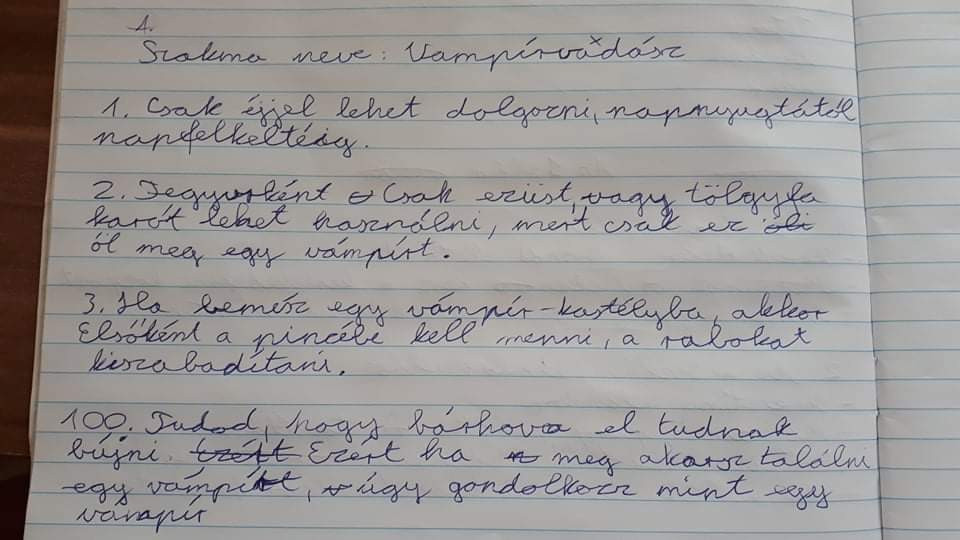 1.
Szakma neve: Vampírvádász
1. Csak éjjel lehet dolgozni, napnyugtától
napfelkeltéig.
2. Fegyverként Csak ezüst, vagy tölgyfa
karót lehet használni, mert csak ez öli
öl meg egy vámpírt.
3. Ha bemész egy vámpír-kastélyba, akkor
Elsőként a pincébe kell menni, a rabokat
kiszabadítani.
100. Tudod, hogy bárhova el tudnak
bújni. Ezért Ezért ha meg akarsz találni
egy vámpírt, úgy gondolkozz mint egy
vámpír